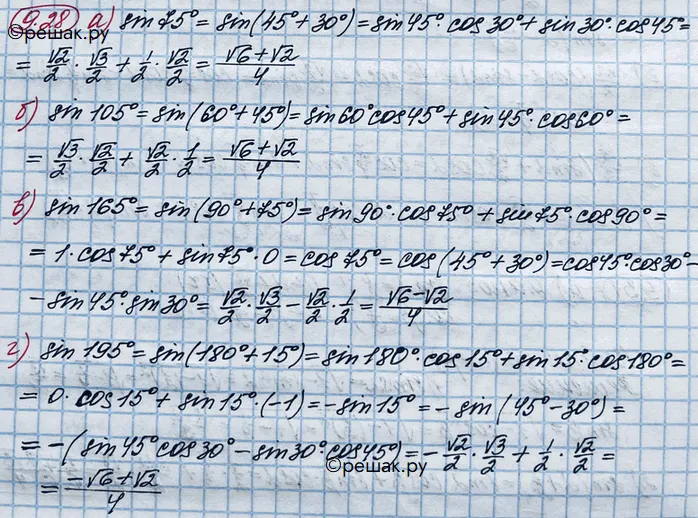 9.28 а) sin 75° = sin(45° + 30°) = sin 45° · cos 30° + sin 30° · cos 45° =
©решак.ру
= √2/2 · √3/2 + 1/2 · √2/2 = (√6 + √2)/4
б) sin 105° = sin(60° + 45°) = sin 60° cos 45° + sin 45° · cos 60° =
= √3/2 · √2/2 + √2/2 · 1/2 = (√6 + √2)/4
в) sin 165° = sin(90° + 75°) = sin 90° · cos 75° + sin 75° · cos 90° =
= 1 · cos 75° + sin 75° · 0 = cos 75° = cos(45° + 30°) = cos 45° · cos 30° −
− sin 45° · sin 30° = √2/2 · √3/2 − √2/2 · 1/2 = (√6 − √2)/4
г) sin 195° = sin(180° + 15°) = sin 180° · cos 15° + sin 15 · cos 180° =
= 0 · cos 15° + sin 15° · (−1) = − sin 15° = − sin(45° − 30°) =
= −(sin 45° cos 30° − sin 30° cos 45°) = − √2/2 · √3/2 + 1/2 · √2/2 =
©решак.ру
= (−√6 + √2)/4